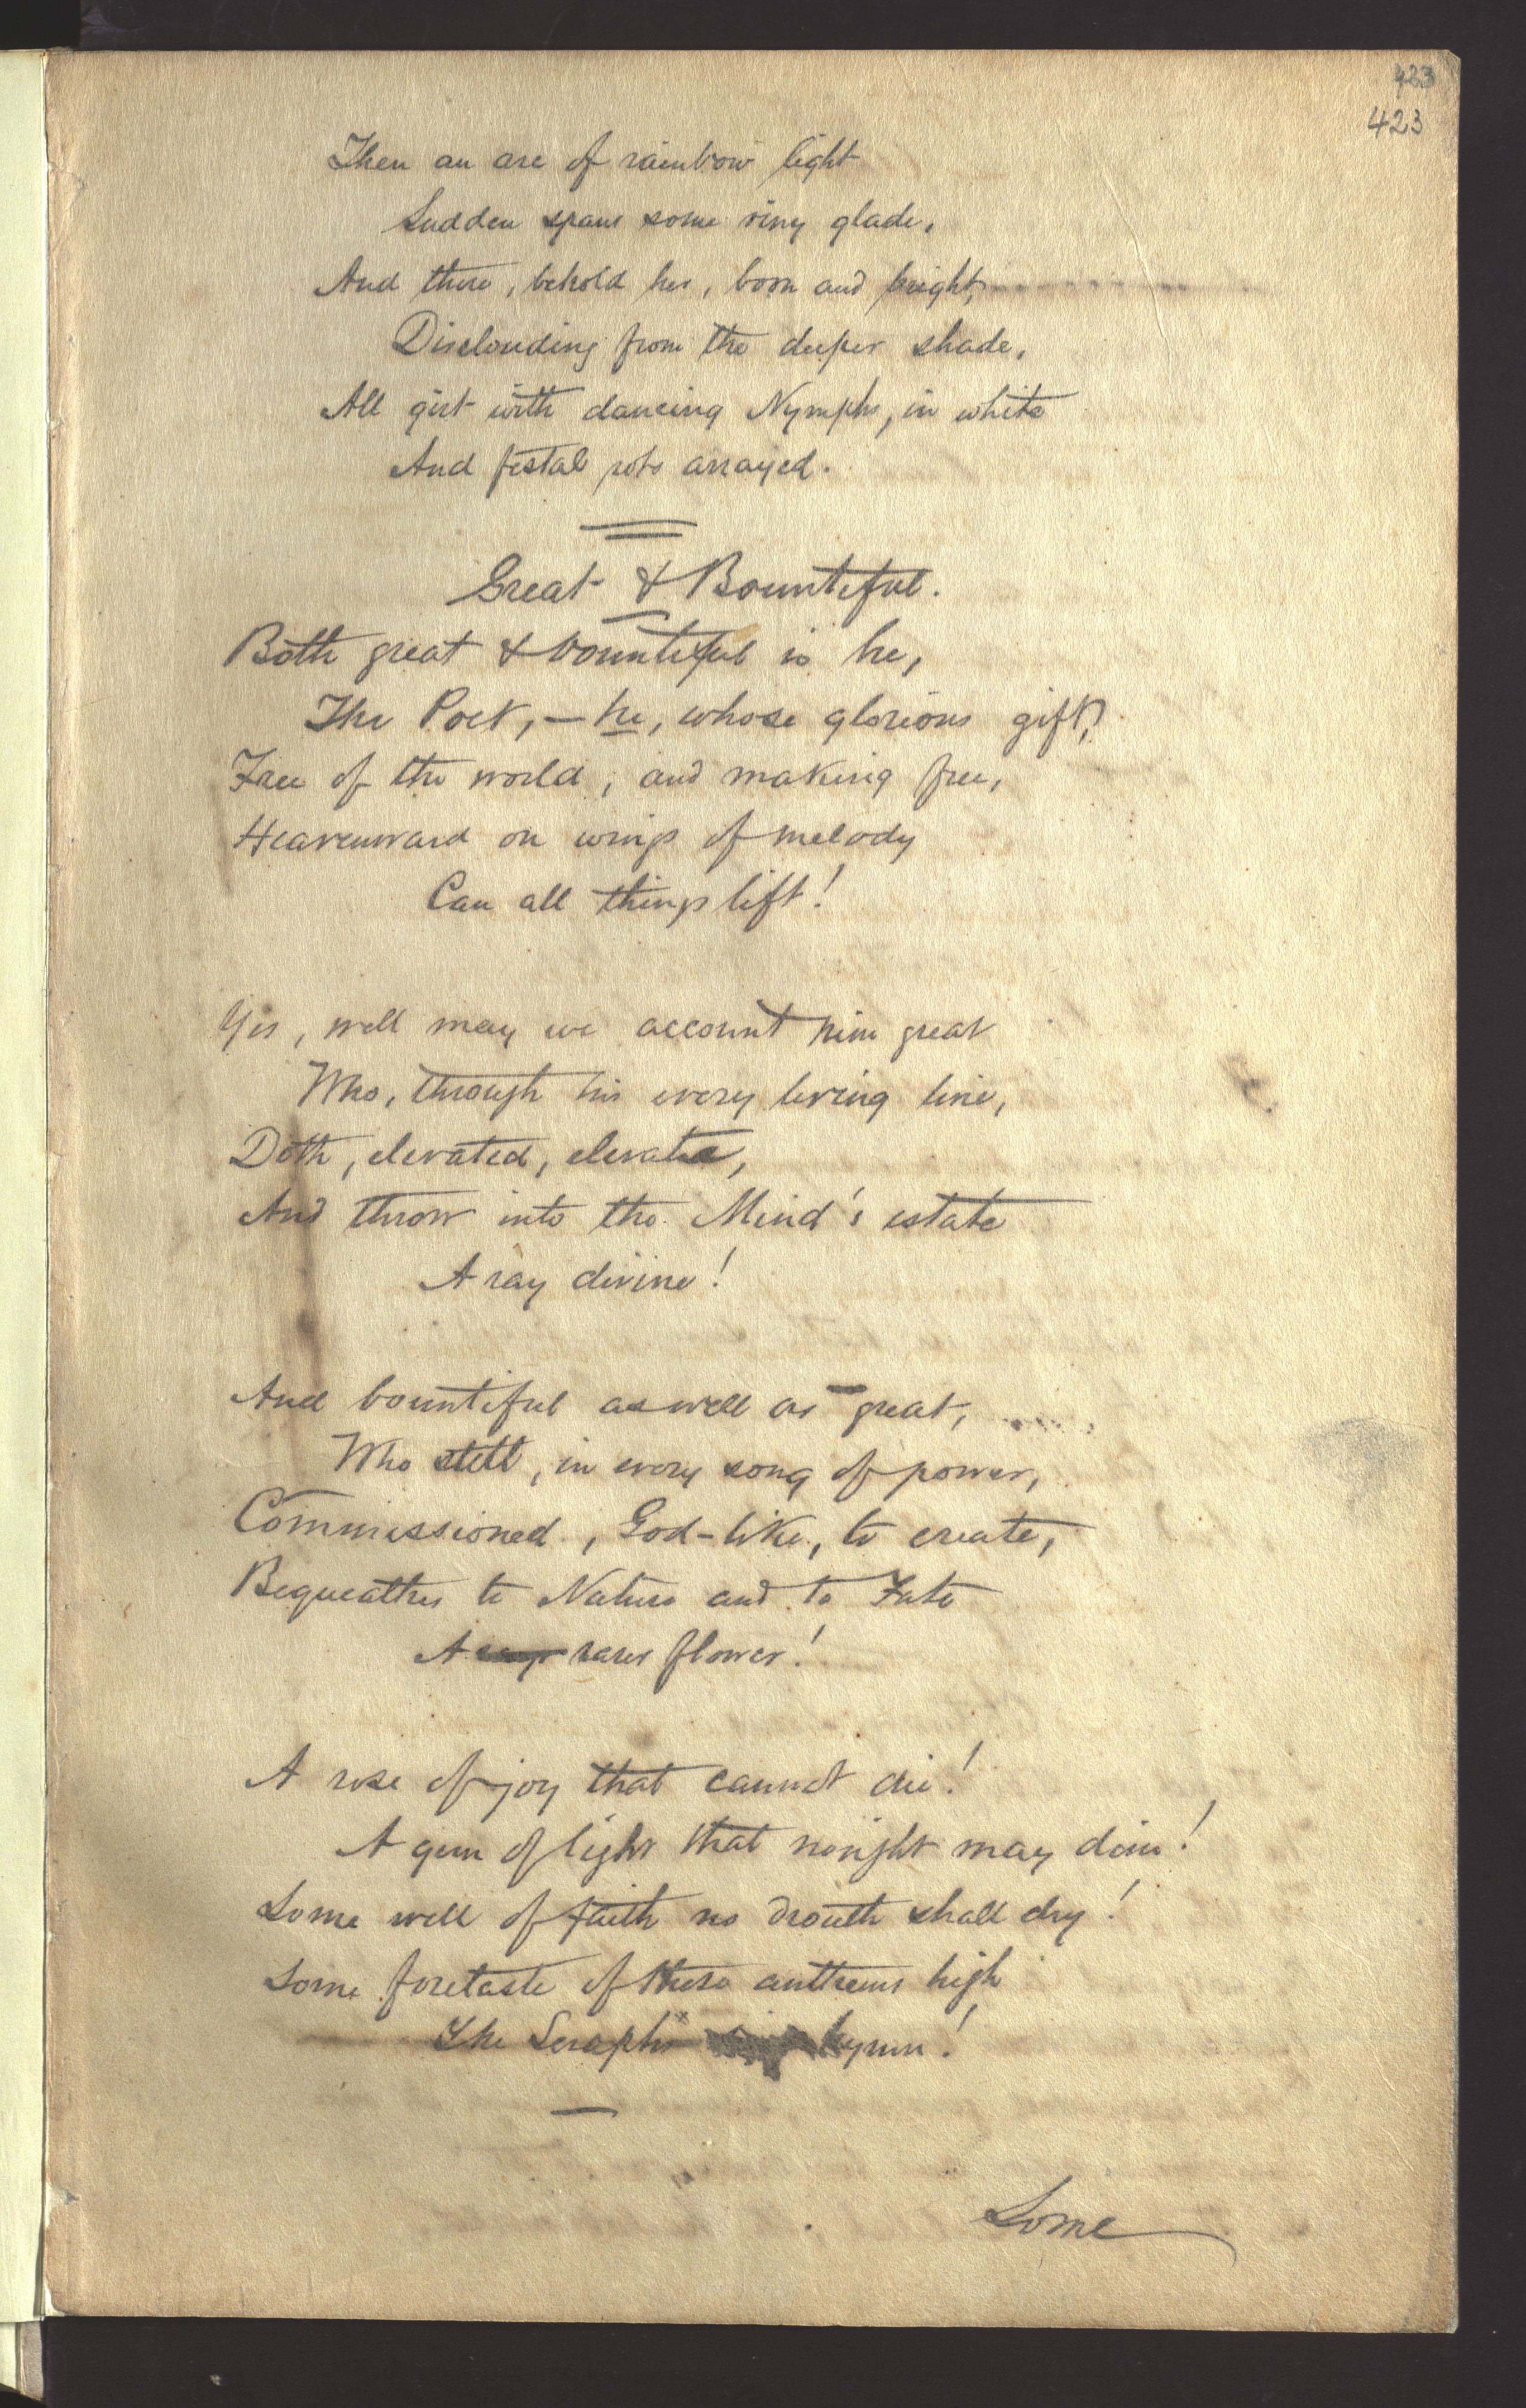 423
423
Then an arc of rainbow light
Sudden spans some viny glade,
And there, behold her, born and bright,
Disclouding from the deeper shade,
All girt with dancing Nymphs, in white
And festal robe arrayed.
Great & Bountiful.
Both great & bountiful is he,
The Poet, — he, whose glorious gift,
Free of the world, and making free,
Heavenward on wings of melody
Can all things lift!
Yes, well may we account him great
Who, through his every living line,
Doth, elevated, elevate,
And throw into the Mind's estate
A ray divine!
And bountiful as well as great,
Who still, in every song of power,
Commissioned, God-like, to create,
Bequeathes to Nature and to Fate
A rarer flower!
A rose of joy that cannot die!
A gem of light that nought may dim!
Some well of faith no drouth shall dry!
Some foretaste of those anthems high
The Seraphs hymn!
Some